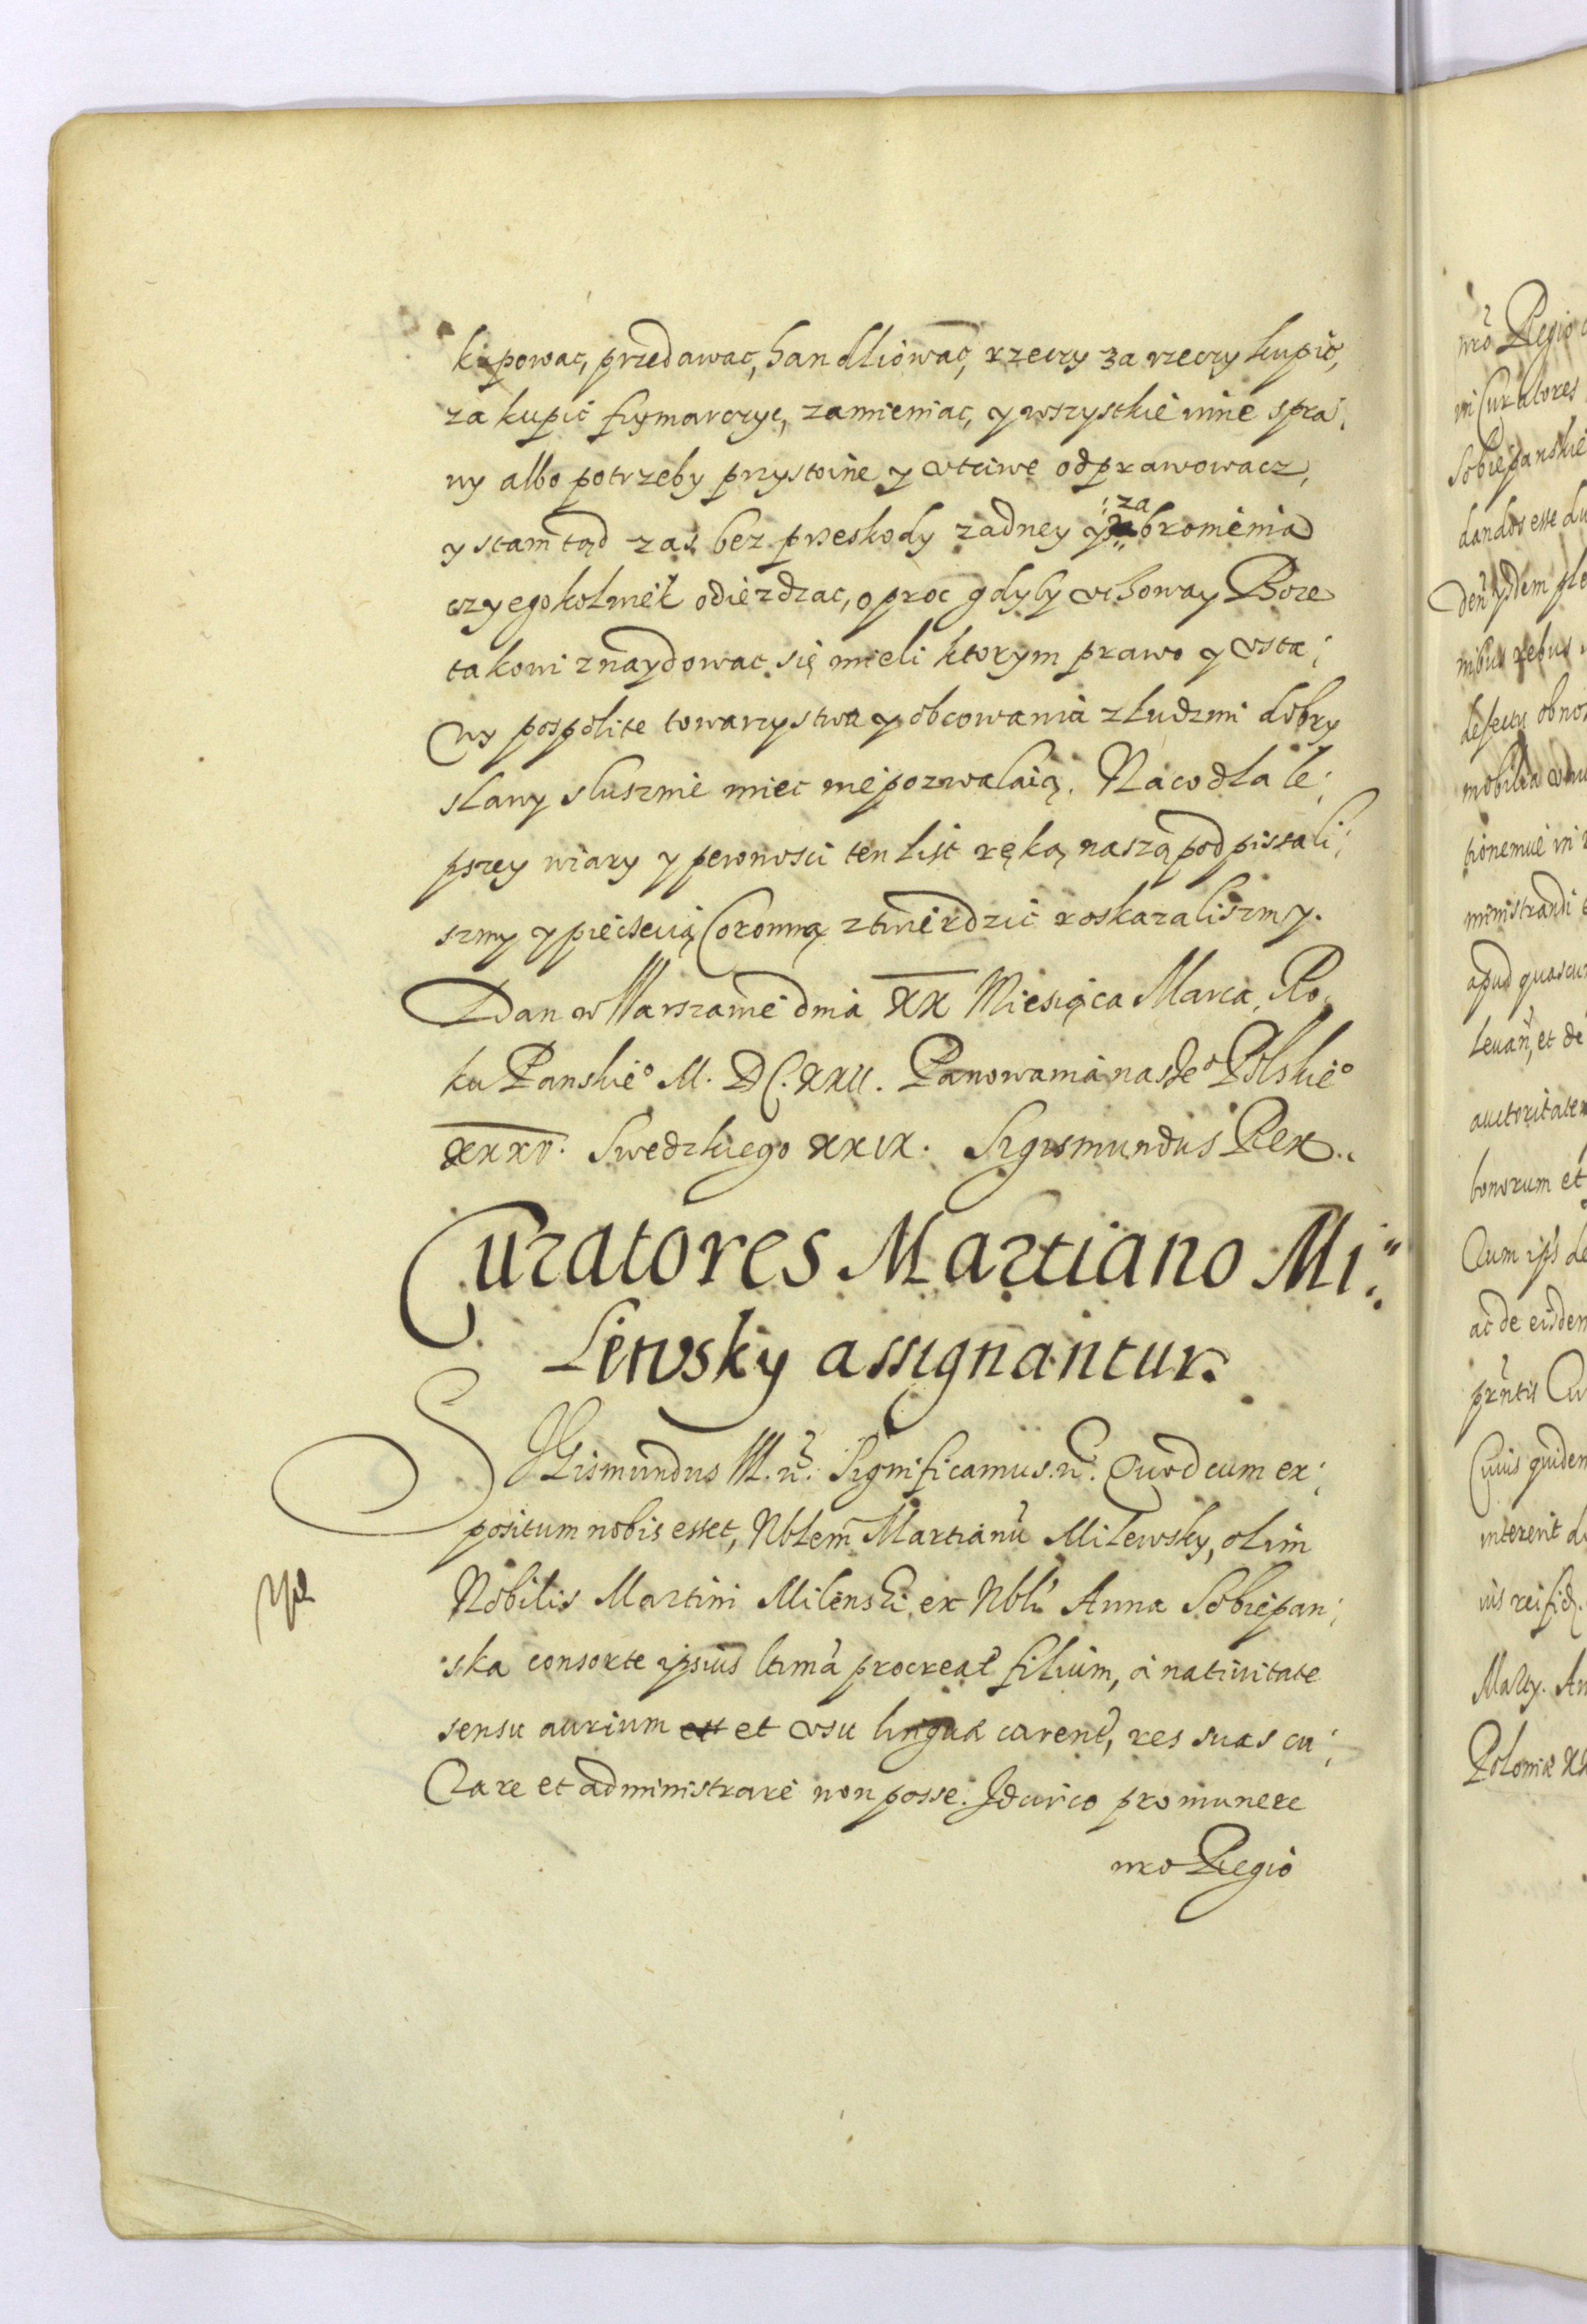 kupowac, przedawac, handliowac, rzeczy za rzeczy kupic,
zakupic frymarczyc, zamieniac, y wszystkie inne spra¡
wy albo potrzeby przystoine y vtciwe odprawowacz,
y stamtąd zas bez przeskody zadney y za bronienia
czyegokolwiek odiezdzac, oproc gdyby vchoway Boze
takowi znaydowac się mieli ktorym prawo y vsta¡
wy pospolite towarzystwa y obcowania z ludzmi dobry
slawy slusznie miec nie pozwalaią. Na co dla le¡
pszey wiary y pewnosci ten list ręką naszą podpissali¡
szmy y pieczecią Coronną ztwierdzic roskazaliszmy.
Dan w Warszawie dnia XX Miesiąca Marca, Ro¡
ku Panskie° M. DC. XXII. Panowania nasze° Polskie°
XXXV. Swedzkiego XXIX. Sigismundus Rex.
Curatores Martiano Mi¡
lewsky assignantur.
SIGismundus III. Significamus. Quod cum ex¡
positum nobis esset, Nblem Martianu Milewsky, olim
Nobilis Martini Milewski ex Nbli Anna Sobiepan¡
ska consorte ipsius ltima procreat filium, a nativitate
sensu aurium et vsu lingua carent, res suas cu¡
rare et administrare non posse. Idcirco pro munere
nro Regio
nro Regio
ni Curatores
Sobiepanskie
dandos esse du
nibus rebus
defectu obno
mobilia
tionemue in
ministrandi
apud quascu
leuan, et de
auctoritatem
bonorum et
Cum ips de
ac de eisdem
prntis Cu
Cuius quidem
intererit
Marty. An
Poloniæ XX